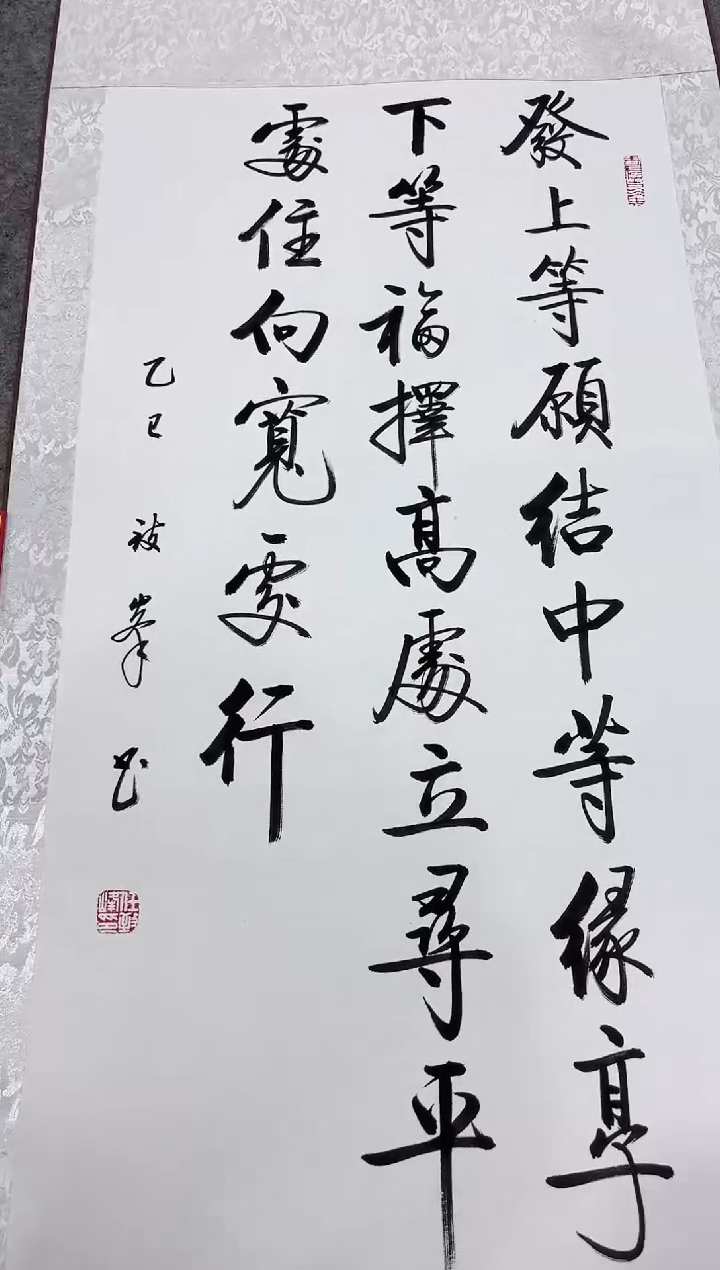 發上等願結中等緣享
下等福擇高處立尋平
處住向寬處行
乙巳 峯書